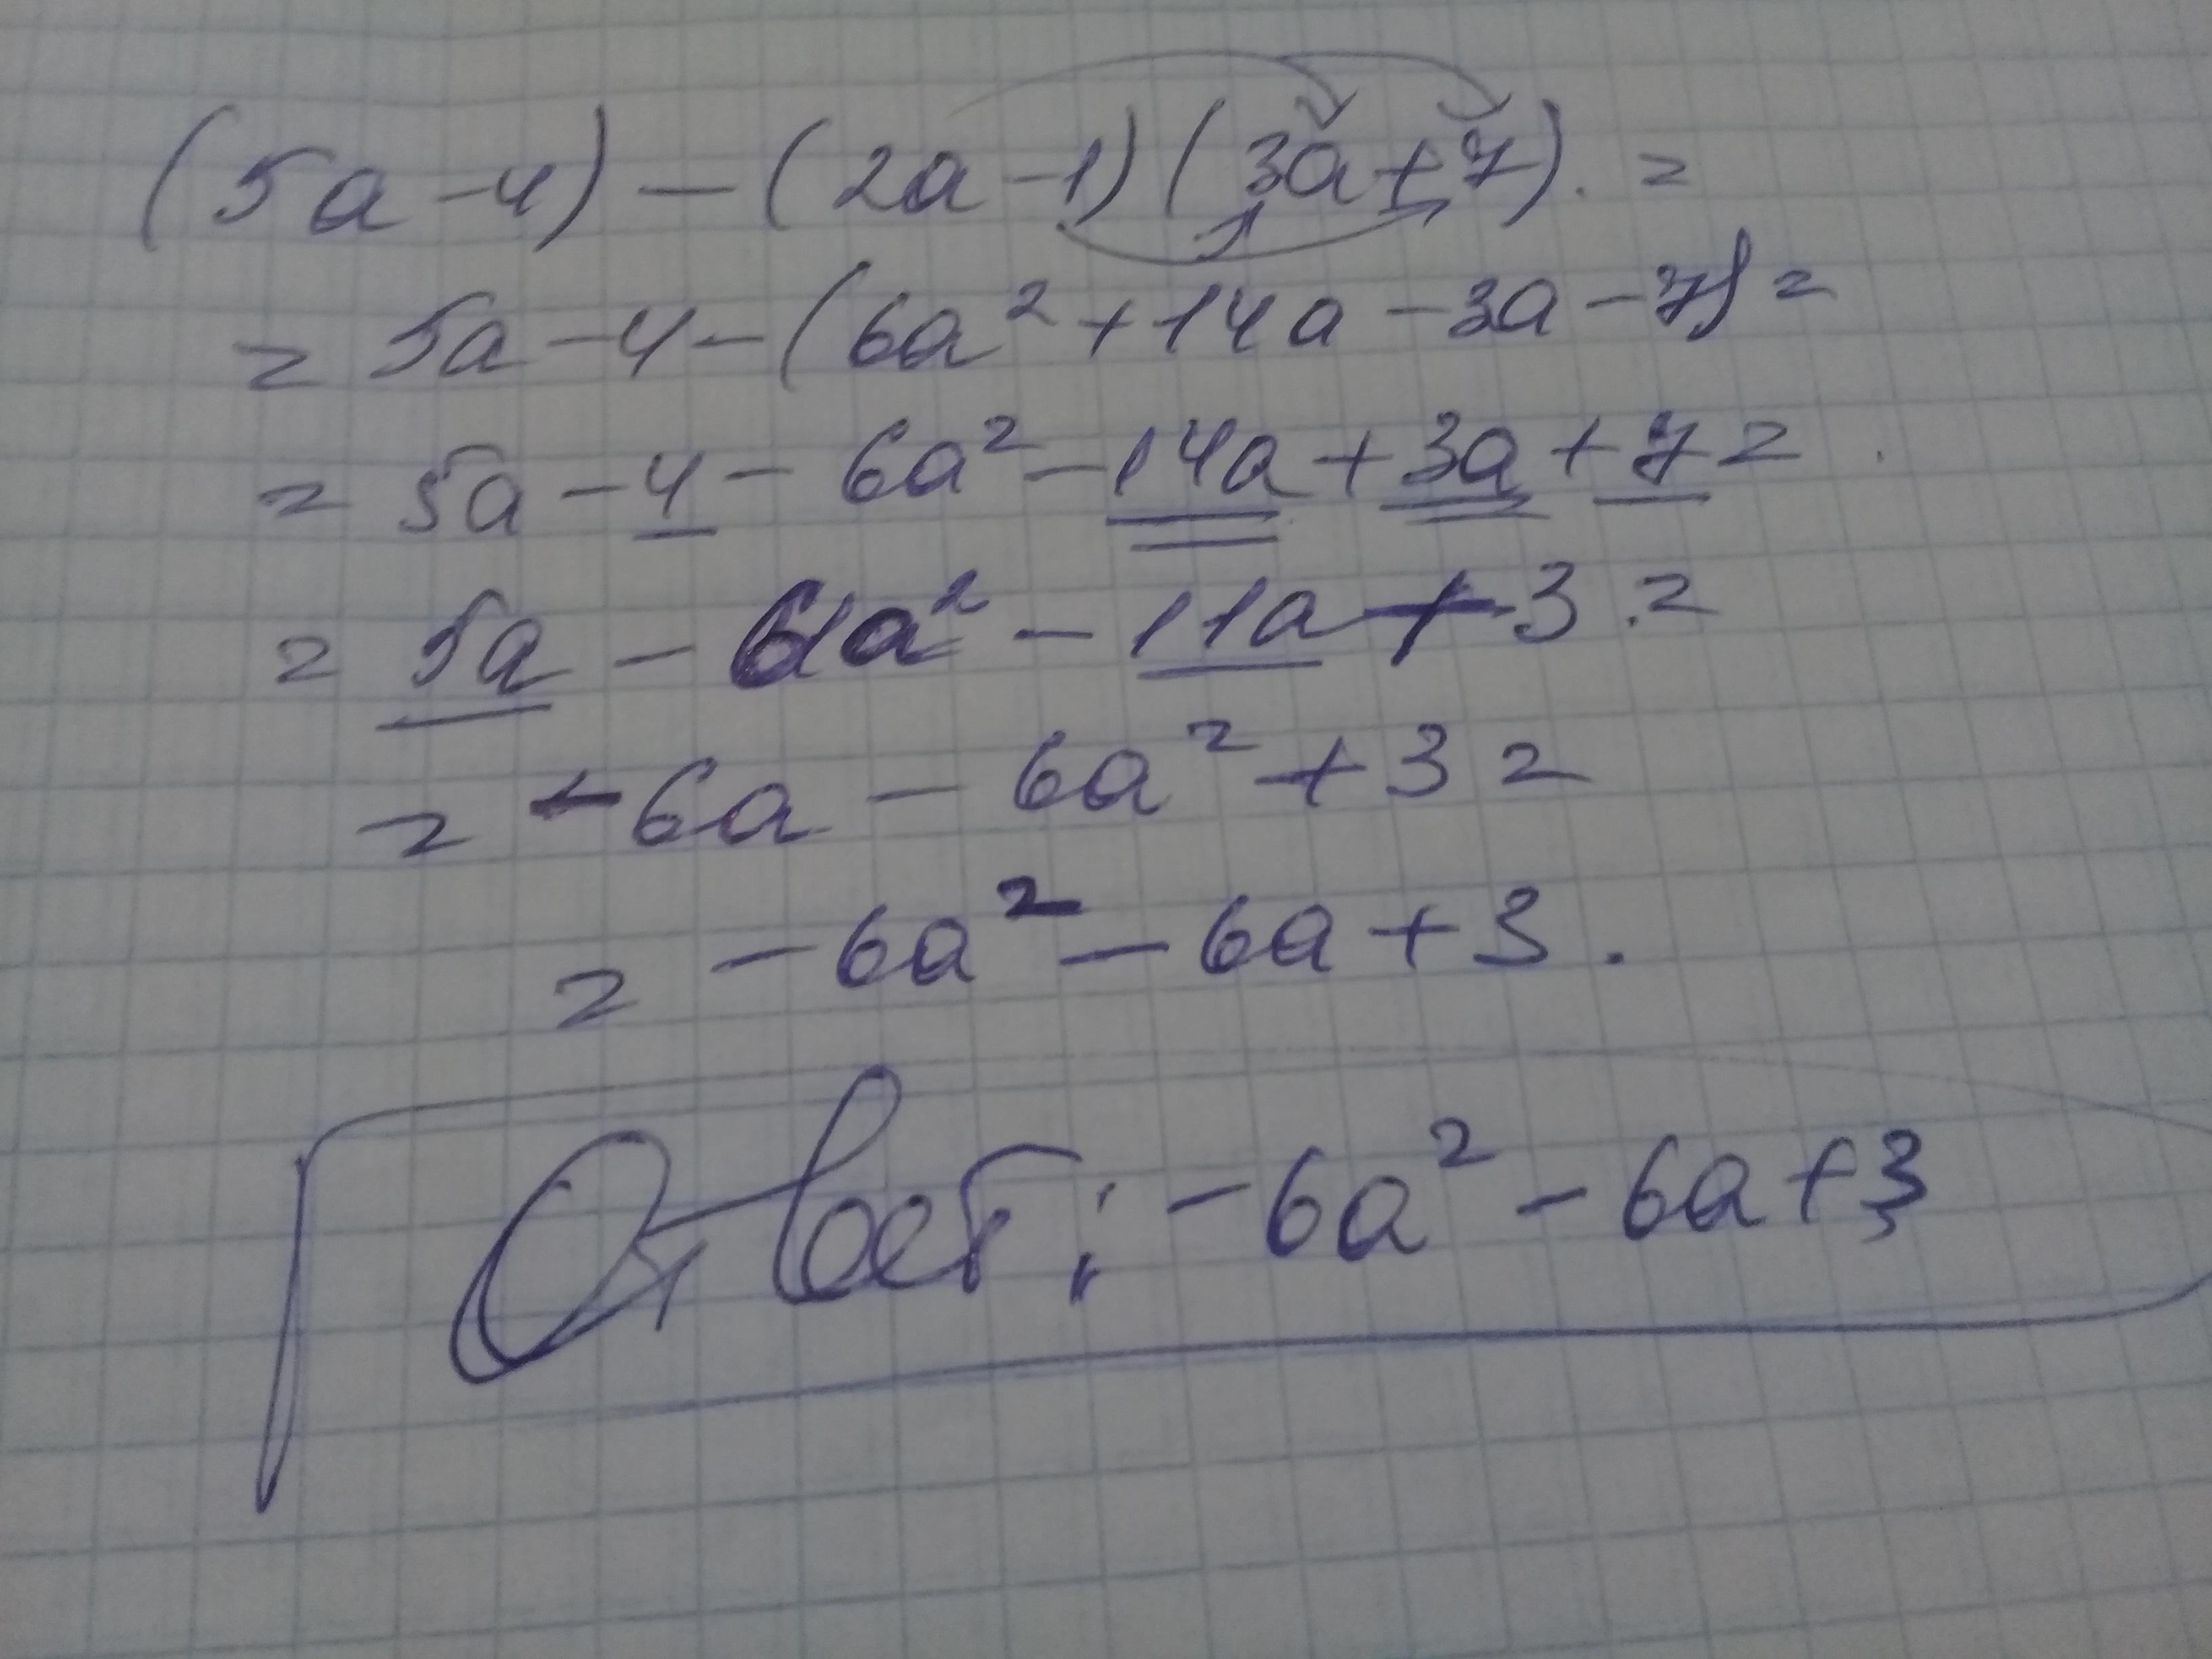 (5a-4)-(2a-1)(3a+7). =
= 5a-4-(6a²+14a-3a-7)=
= 5a-4-6a²-14a+3a+7=
= 5a-6a²-11a+3.=
= -6a-6a²+3=
= -6a²-6a+3.
Ответ: -6a²-6a+3